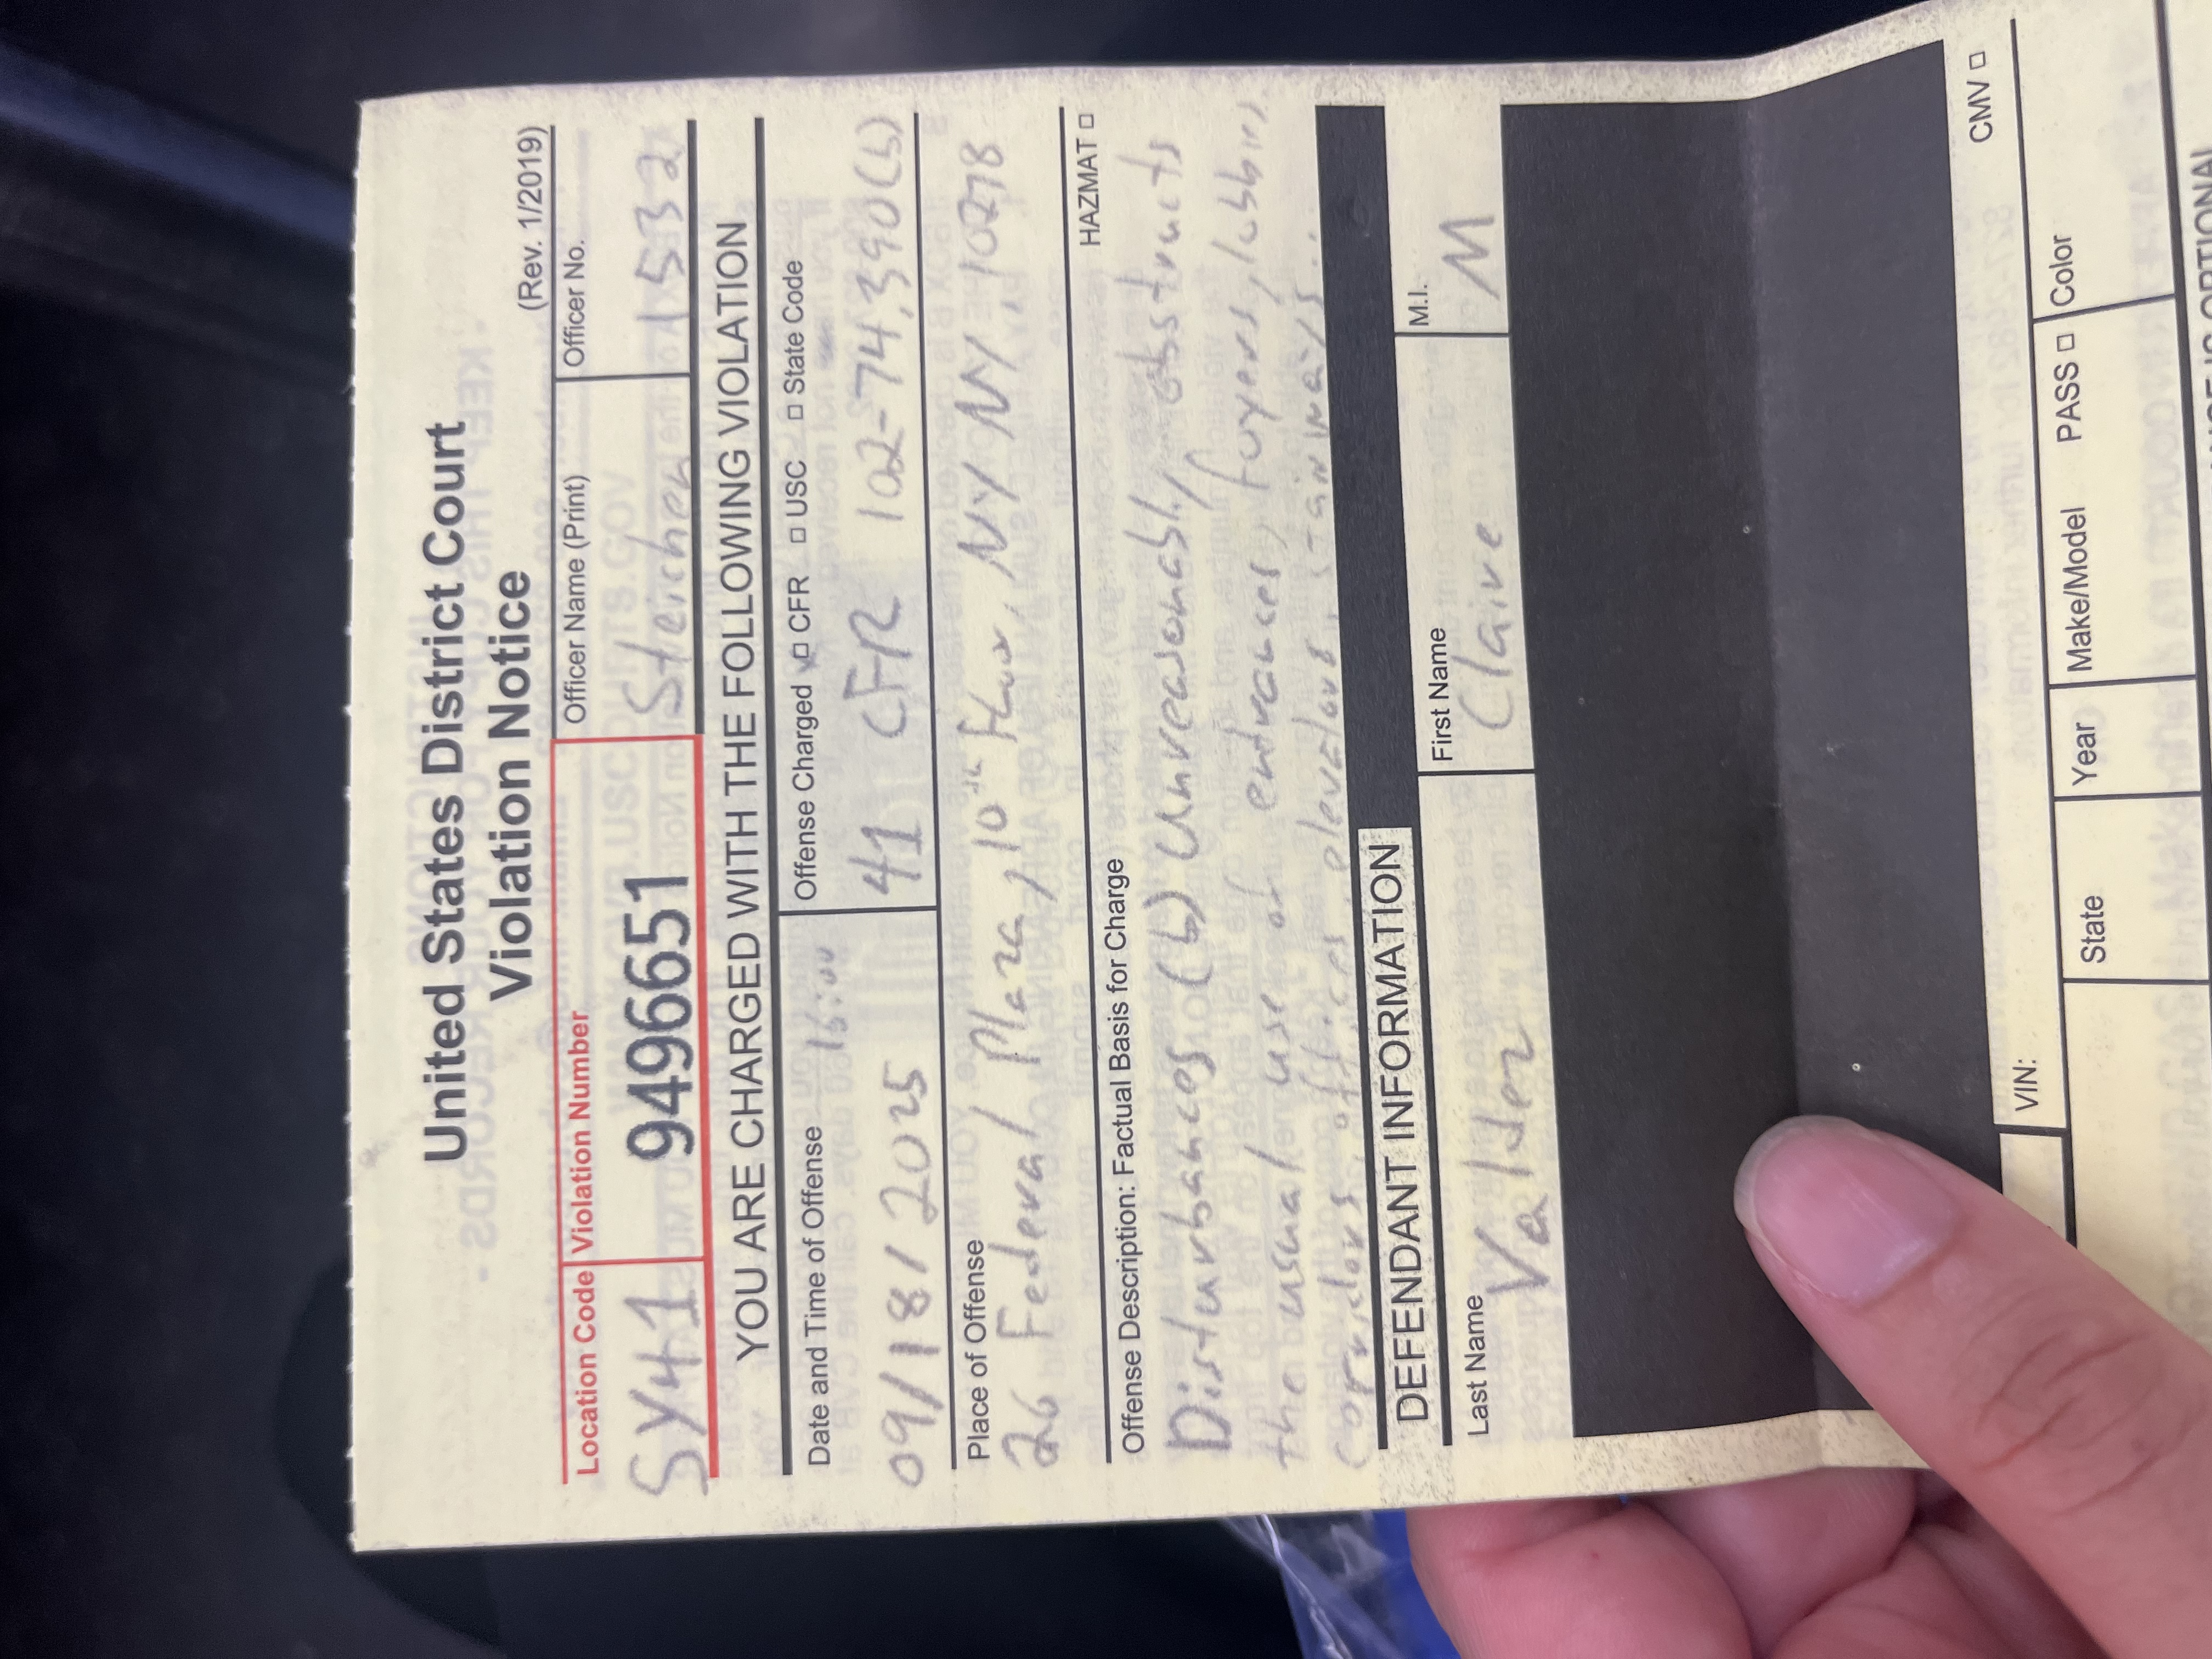 United States District Court
Violation Notice
(Rev. 1/2019)
Location Code Violation Number Officer Name (Print) Officer No.
SY41 9496651 Steichen 1532
YOU ARE CHARGED WITH THE FOLLOWING VIOLATION
Date and Time of Offense Offense Charged □ CFR □ USC □ State Code
09/18/2025 16:00 41 CFR 102-74.390(b)
Place of Offense
26 Federal Plaza, 10th Floor, NY NY, 10278
Offense Description: Factual Basis for Charge HAZMAT □
Disturbances (b) Unreasonably obstructs
the usual use of entrances, foyers, lobbies,
corridors, offices, elevators, stairways...
DEFENDANT INFORMATION
Last Name First Name M.I.
Valdez Claire M
VIN: CMV □
State Year Make/Model PASS □ Color